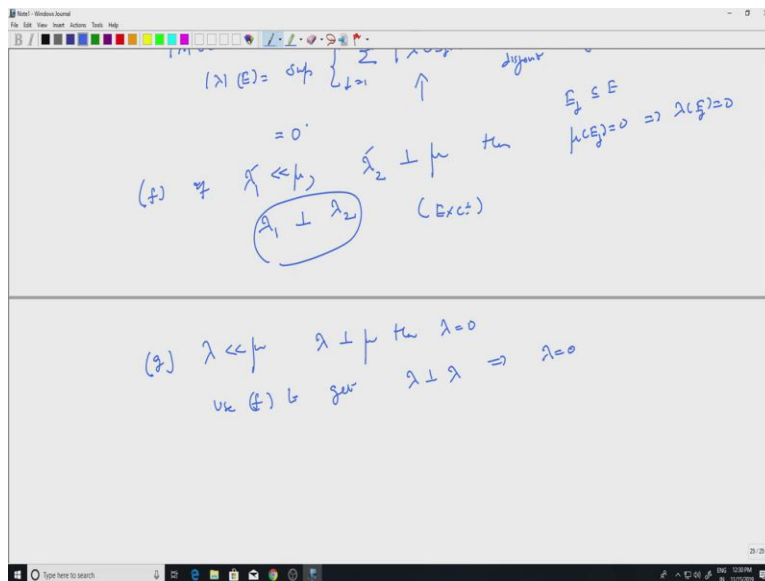 Note1 - Windows Journal
File Edit View Insert Actions Tools Help
B I
|λ|(E) = sup { Σ j=1 disjoint
E_j ⊆ E
= 0
μ(E_j)=0 ⇒ λ(E_j)=0
(f) if λ₁ << μ, λ₂ ⊥ μ then
λ₁ ⊥ λ₂ (Exc±)
(g) λ << μ λ ⊥ μ then λ=0
use (f) to get λ ⊥ λ ⇒ λ=0
25 / 25
Type here to search
ENG 12:30 PM
IN 11/25/2019